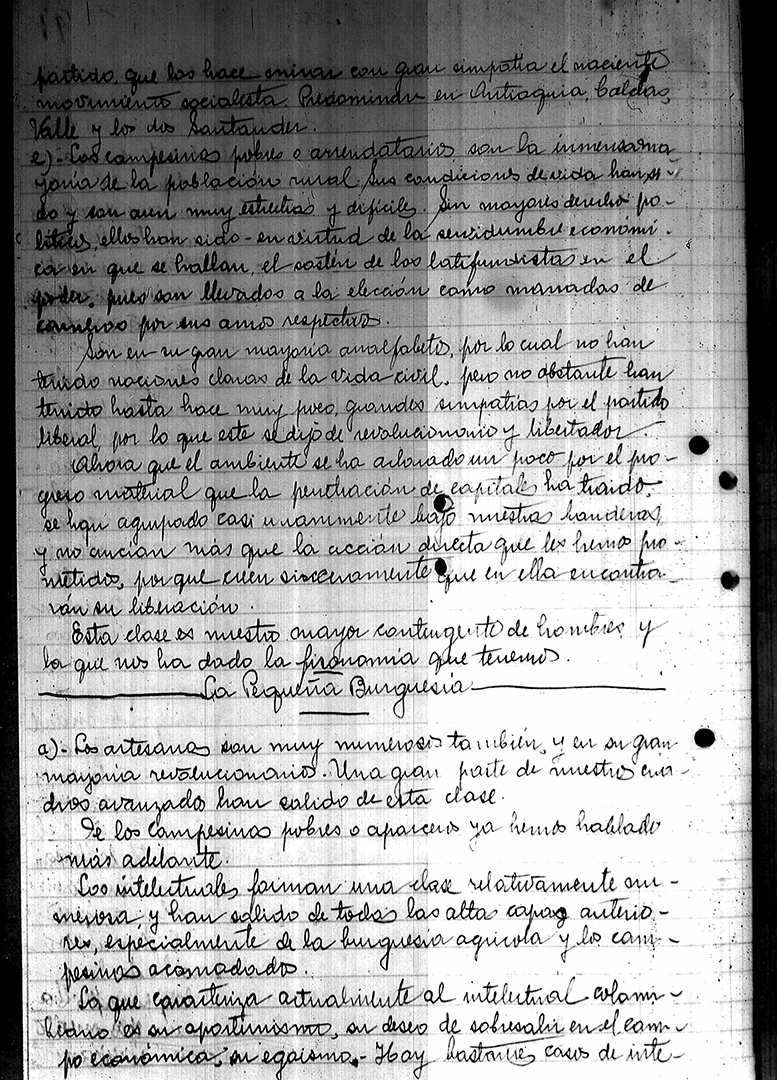 partido, que los hace mirar con gran simpatia el naciente
movimiento socialista. Predominan en Antioquia, Caldas,
Valle y los dos Santander.
e)- Los campesinos pobres o arrendatarios, son la inmensa ma
yoria de la población rural. Sus condiciones de vida han si-
do y son aun muy estrechas y dificiles. Sin mayores derechos po-
liticos, ellos han sido - en virtud de la servidumbre económi-
ca en que se hallan, el sostén de los latifundistas en el
poder, pues son llevados a la elección como manadas de
carneros por sus amos respectivos.
Son en su gran mayoria analfabetos, por lo cual no han
tenido nociones claras de la vida civil, pero no obstante han
tenido hasta hace muy poco, grandes simpatias por el partido
liberal, por lo que este se dijo de revolucionario y libertador.
Ahora que el ambiente se ha aclarado un poco por el pro-
greso material que la penetración de capitales ha traido,
se han agrupado casi unanimente bajo nuestras banderas,
y no ancian más que la acción directa que les hemos pro-
metidos, por que creen sinceramente que en ella encontra-
rán su liberación.
Esta clase es nuestro mayor contingente de hombres y
la que nos ha dado la fisonomia que tenemos.
La Pequeña Burguesia
a)- Los artesanos son muy numerosos también, y en su gran
mayoria revolucionarios. Una gran parte de nuestros cua-
dros avanzados han salido de esta clase.
De los campesinos pobres o aparceros ya hemos hablado
más adelante.
Los intelectuales forman una clase relativamente nu-
merosa, y han salido de todas las altas capas anterio-
res, especialmente de la burguesia agricola y los cam-
pesinos acomodados.
Lo que caracteriza actualmente al intelectual colom-
biano es su oportunismo, su deseo de sobresalir en el cam-
po económico, su egoismo.- Hay bastantes casos de inte-